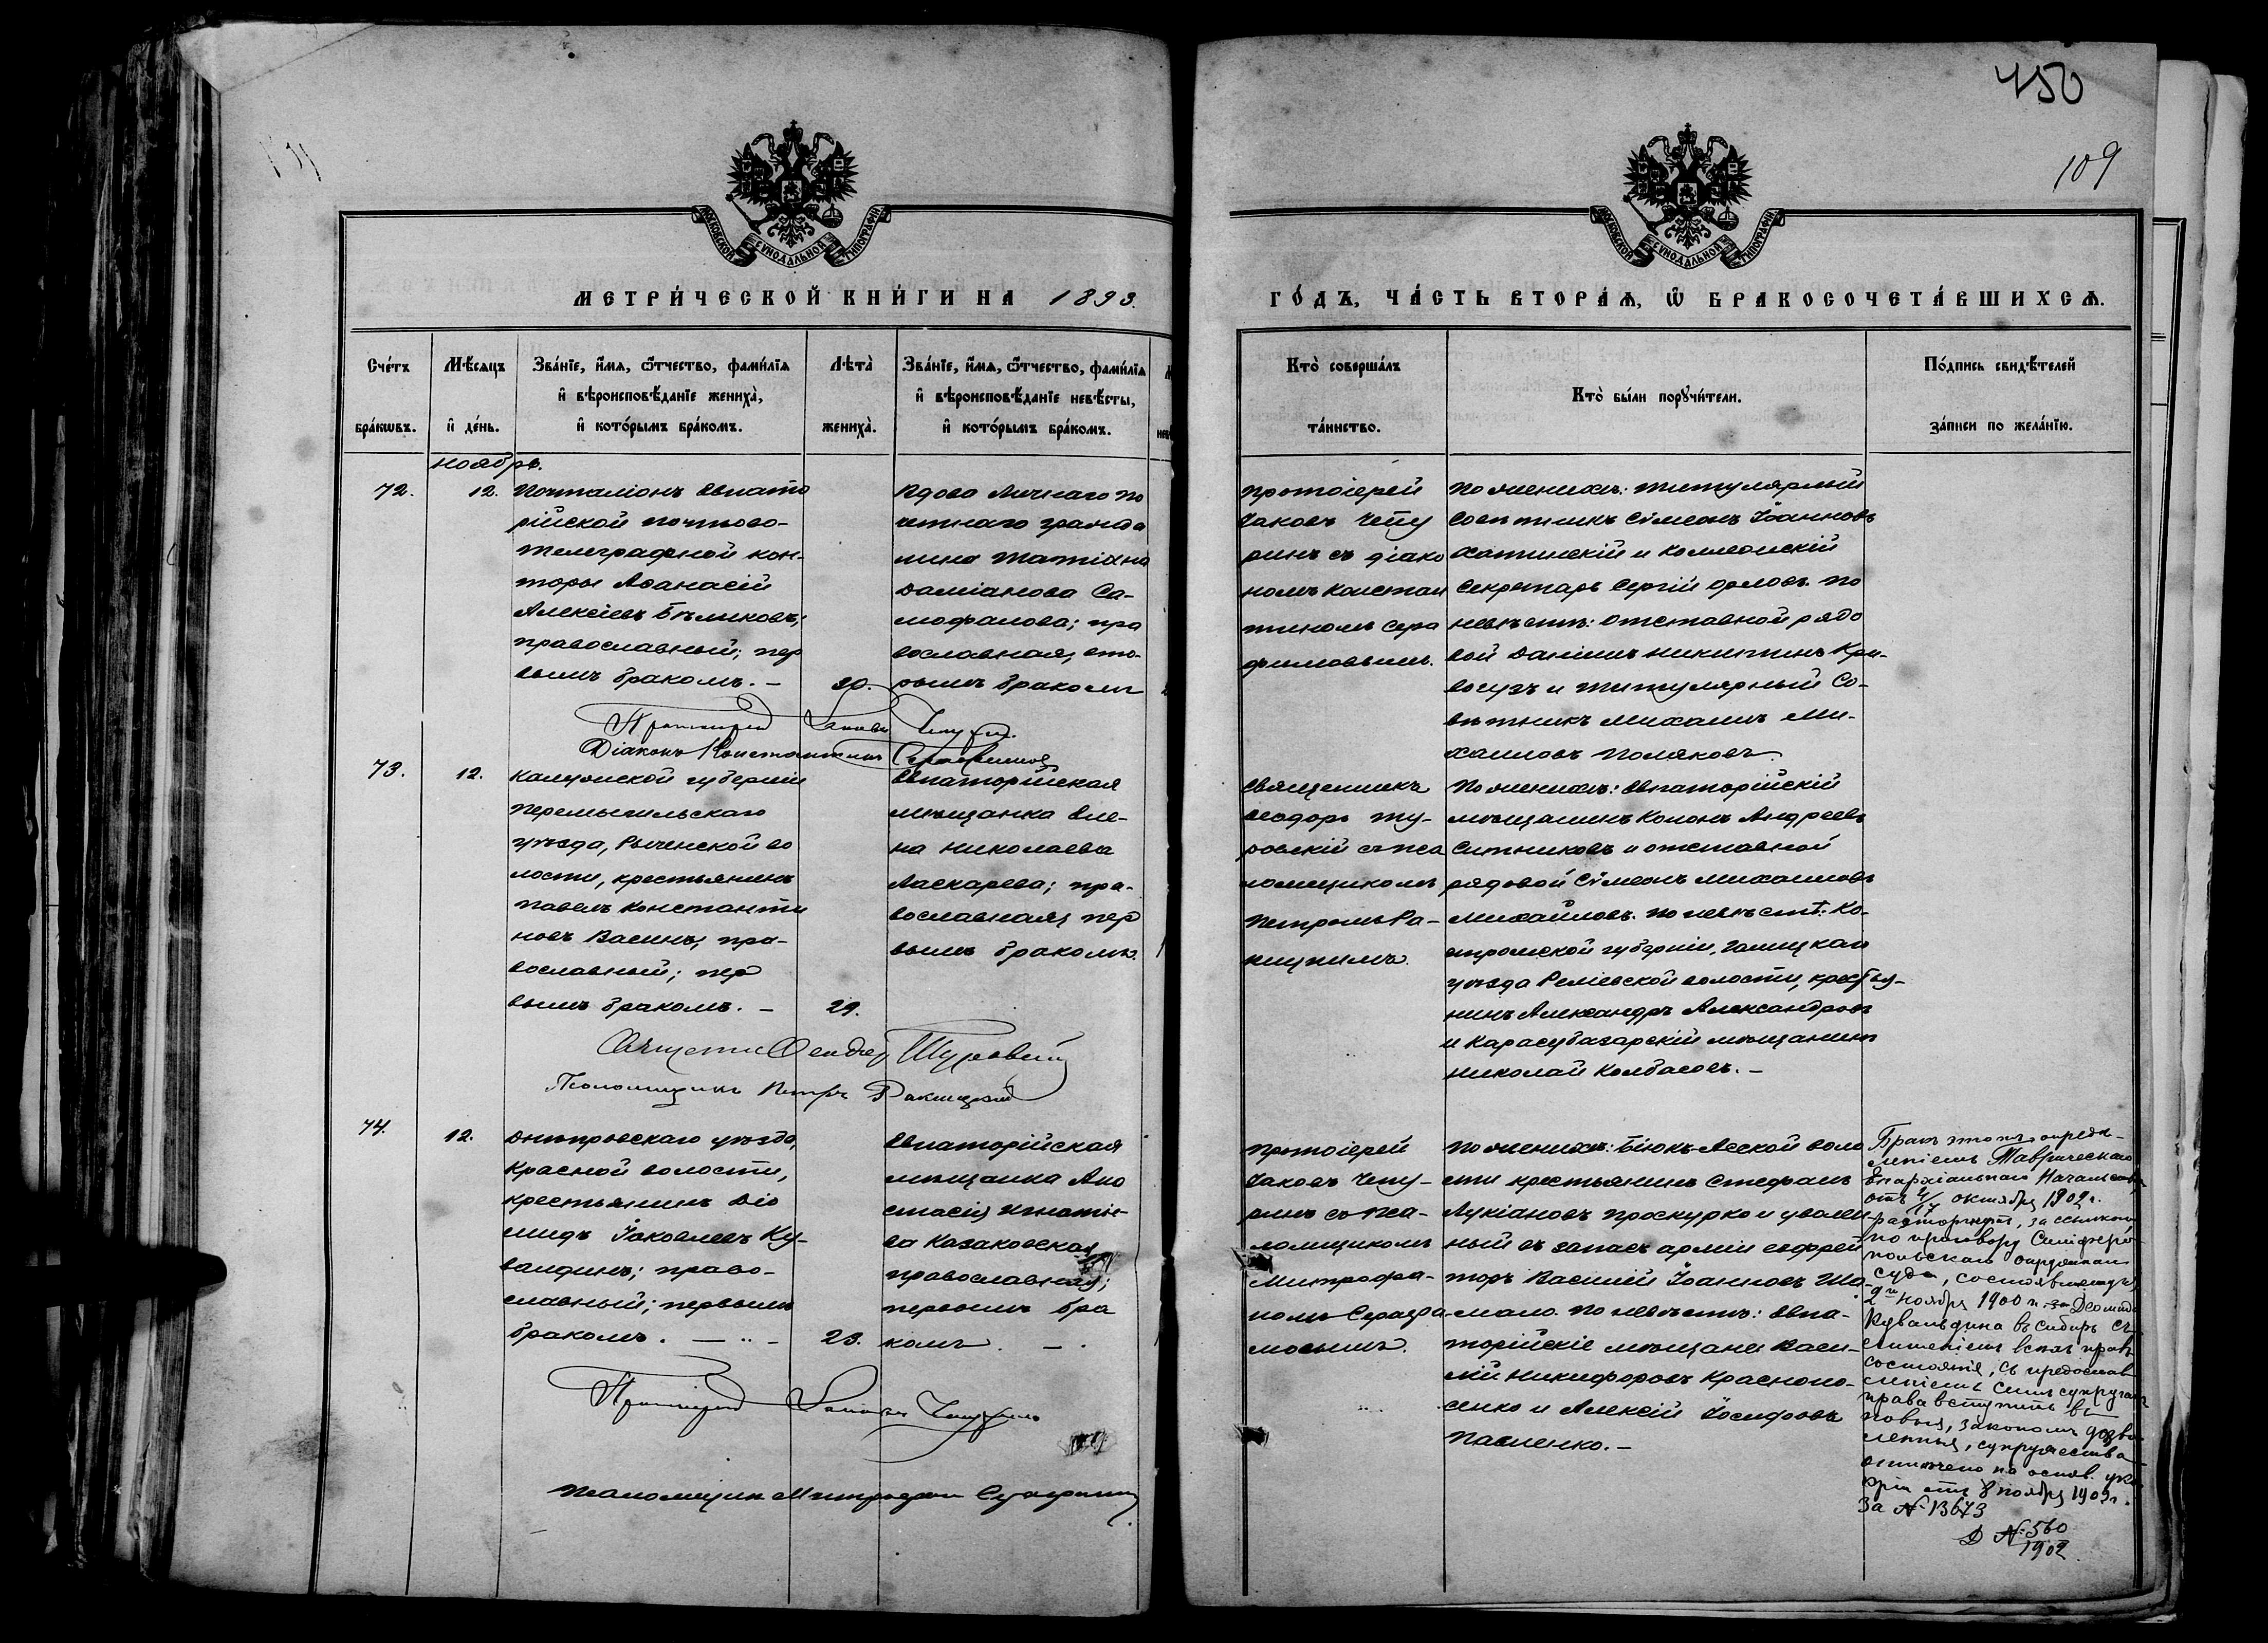 450
109
МОСКОВСКОЙ СУНОДАЛЬНОЙ ТИПОГРАФІИ
МОСКОВСКОЙ СУНОДАЛЬНОЙ ТИПОГРАФІИ
МЕТРИ́ЧЕСКОЙ КНИ́ГИ НА 1893.
ГО́ДЪ, ЧА́СТЬ ВТОРА́Ѧ, Ѡ҆ БРАКОСОЧЕТА́ВШИХСѦ.
Сче́тъ
бра́кѡвъ.
Мѣ́сяцъ
и҆ де́нь.
Зва́нїе, и҆́мѧ, ѻ҆́тчество, фами́лїѧ
и҆ вѣроисповѣ́данїе жениха̀,
и҆ кото́рымъ бра́комъ.
Лѣта̀
жениха̀.
Зва́нїе, и҆́мѧ, ѻ҆́тчество, фами́лїѧ
и҆ вѣроисповѣ́данїе невѣ́сты,
и҆ кото́рымъ бра́комъ.
Кто̀ соверша́лъ
та́инство.
Кто̀ бы́ли порꙋчи́тели.
По́дпись свидѣ́телей
за́писи по жела́нїю.
ноябрь.
72.
12.
Почталіонъ Евпато
рійской почтово-
телеграфной кон-
торы Аѳанасій
Алексіевъ Бѣликовъ;
православный; пер
вымъ бракомъ. —
30.
Вдова Личнаго по
четнаго гражда
нина Татіана
Даміанова Са-
мофалова; пра
вославная; вто-
рымъ бракомъ
Протоіерей
Іаковъ Чепу
ринъ съ діако
номъ Констан
тиномъ Сера
фимовымъ.
По женихѣ: титулярный
Совѣтникъ Сѵмеонъ Іоанновъ
Хатинскій и Коллежскій
Секретарь Сергій Орловъ. По
невѣстѣ: отставной рядо
вой Даніилъ Никитинъ Кри-
вогузъ и титулярный Со-
вѣтникъ Михаилъ Ми-
хаиловъ Поляковъ.
Протоіерей Іаковъ Чепуринъ
Діаконъ Константинъ Серафимовъ
73.
12.
Калужской губерніи
Перемышльскаго
уѣзда, Рыченской во
лости, крестьянинъ
Павелъ Константи
новъ Васинъ; пра-
вославный; пер
вымъ бракомъ. —
29.
Евпаторійская
мѣщанка Еле-
на Николаева
Ласкарева; пра-
вославная; пер
вымъ бракомъ.
Священникъ
Ѳеодоръ Ту-
ровскій съ пса
ломщикомъ
Петромъ Ра-
кицкимъ.
По женихѣ: Евпаторійскій
мѣщанинъ Конон Андреевъ
Ситниковъ и отставной
рядовой Сѵмеонъ Михаиловъ
Михайловъ. По невѣстѣ: Ко-
стромской губерніи, Галицкаго
уѣзда Реміевской волости, крестья-
нинъ Александръ Александровъ
и Карасубазарскій мѣщанинъ
Николай Колбасовъ. —
Священникъ Ѳеодоръ Туровскій
Псаломщикъ Петръ Ракицкій
74.
12.
Днѣпровскаго уѣзда,
Красной волости,
крестьянинъ Діо
мидъ Іаковлевъ Ку-
валдинъ; право-
славный; первымъ
бракомъ. —
23.
Евпаторійская
мѣщанка Ана
стасія Игнатіе-
ва Казаковская
православная;
первымъ бра
комъ. —
Протоіерей
Іаковъ Чепу-
ринъ съ пса-
ломщикомъ
Митрофа-
номъ Серафи
мовымъ.
По женихѣ: Біюкъ-Асской воло
сти крестьянинъ Стефанъ
Лукіановъ Проскурко и уволен-
ный въ запасъ арміи ефрей
торъ Василій Іоанновъ Ша-
мало. По невѣстѣ: Евпа-
торійскіе мѣщане Васи-
лій Никифоровъ Красноно-
сенко и Алексій Іосифовъ
Павленко. —
Бракъ этотъ опредѣ-
леніемъ Таврическаго
Епархіальнаго Начальства
отъ 4/17 октября 1902 г.
расторгнутъ, за ссылкою
по приговору Симферо-
польскаго окружнаго
суда, состоявшемуся
2го ноября 1900 г. Діомида
Кувалдина въ Сибирь съ
лишеніемъ всѣхъ правъ
состоянія, съ предостав
леніемъ симъ супругамъ
права вступить въ
новыя, закономъ дозво
ленныя, супружества
отмѣчено на основ. указа
отъ 8 ноября 1902 г.
за № 13673
Д № 560
1902
Протоіерей Іаковъ Чепуринъ
Псаломщикъ Митрофанъ